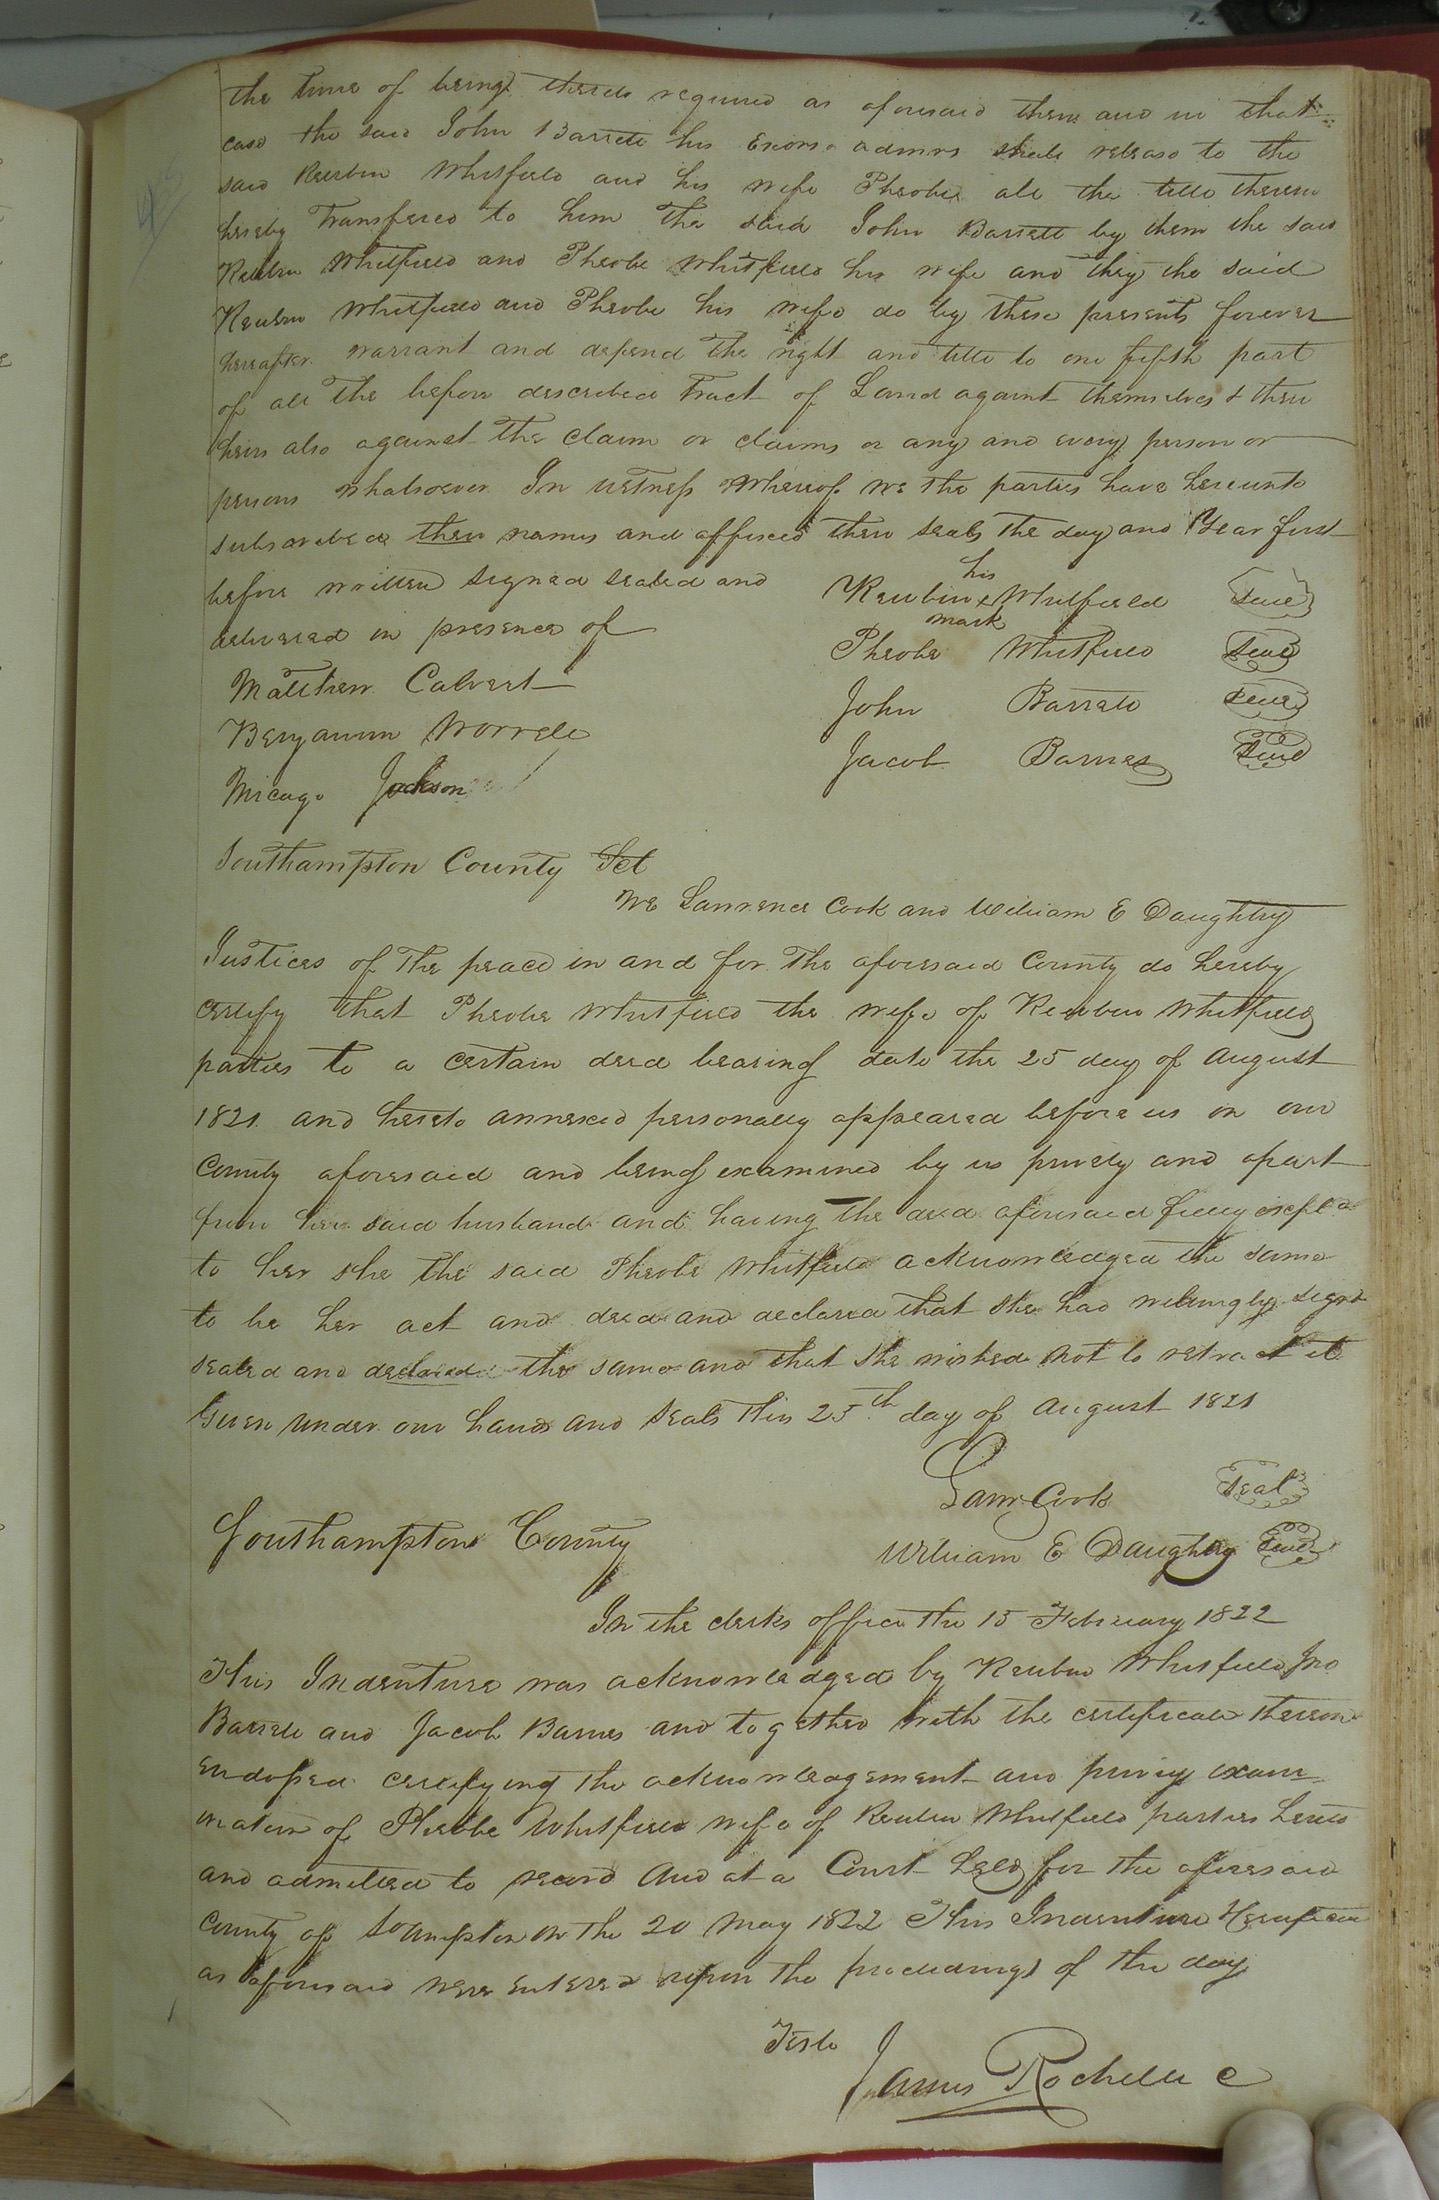 the time of being thereto required as aforesaid then and in that
case the said John Barrett his Exors. admrs shall release to the
said Reuben Whitfield and his wife Pheobe all the title therein
hereby Transfered to him the said John Barrett by them the said
Reuben Whitfield and Pheobe Whitfield his wife and they the said
Reuben Whitfield and Pheobe his wife do by these presents forever
hereafter warrant and defend the right and title to one fifth part
of all the before described Tract of Land against themselves & their
heirs also against the claim or claims or any and every person or
persons whatsoever In witness Whereof we the parties have hereunto
subscribed their names and affixed their seals the day and Year first
before written Signed Sealed and
delivered in presence of
Matthew Calvert
Benjamin Worrell
Micago Jackson
his
Reubin x Whitfield Seal
mark
Pheobe Whitfield Seal
John Barrett Seal
Jacob Barnes Seal
Southampton County Sct
We Lawrence Cook and William E Daughtry
Justices of the peace in and for the aforesaid County do hereby
certify that Pheobe Whitfield the wife of Reuben Whitfield
parties to a certain deed bearing date the 25 day of August
1821 and hereto annexed personally appeared before us in our
County aforesaid and being examined by us privily and apart
from her said husband and having the deed aforesaid fully expld
to her she the said Pheobe Whitfield acknowledged the same
to be her act and deed and declared that she had willingly signd
sealed and declared the same and that she wished not to retract it
Given under our hands and seals this 25th day of August 1821
Lawr Cook Seal
William E Daughtry Seal
Southampton County
In the clerks office the 15 February 1822
This Indenture was acknowledged by Reuben Whitfield Jno
Barrett and Jacob Barnes and together with the certificate thereon
endorsed certifying the acknowledgement and privy exam
ination of Pheobe Whitfield wife of Reuben Whitfield parties hereto
and admitted to record And at a Court held for the aforesaid
County of Sohampton on the 20 May 1822 This Indenture & Certificate
as aforesaid were entered upon the proceedings of the day
Teste
James Rochelle C